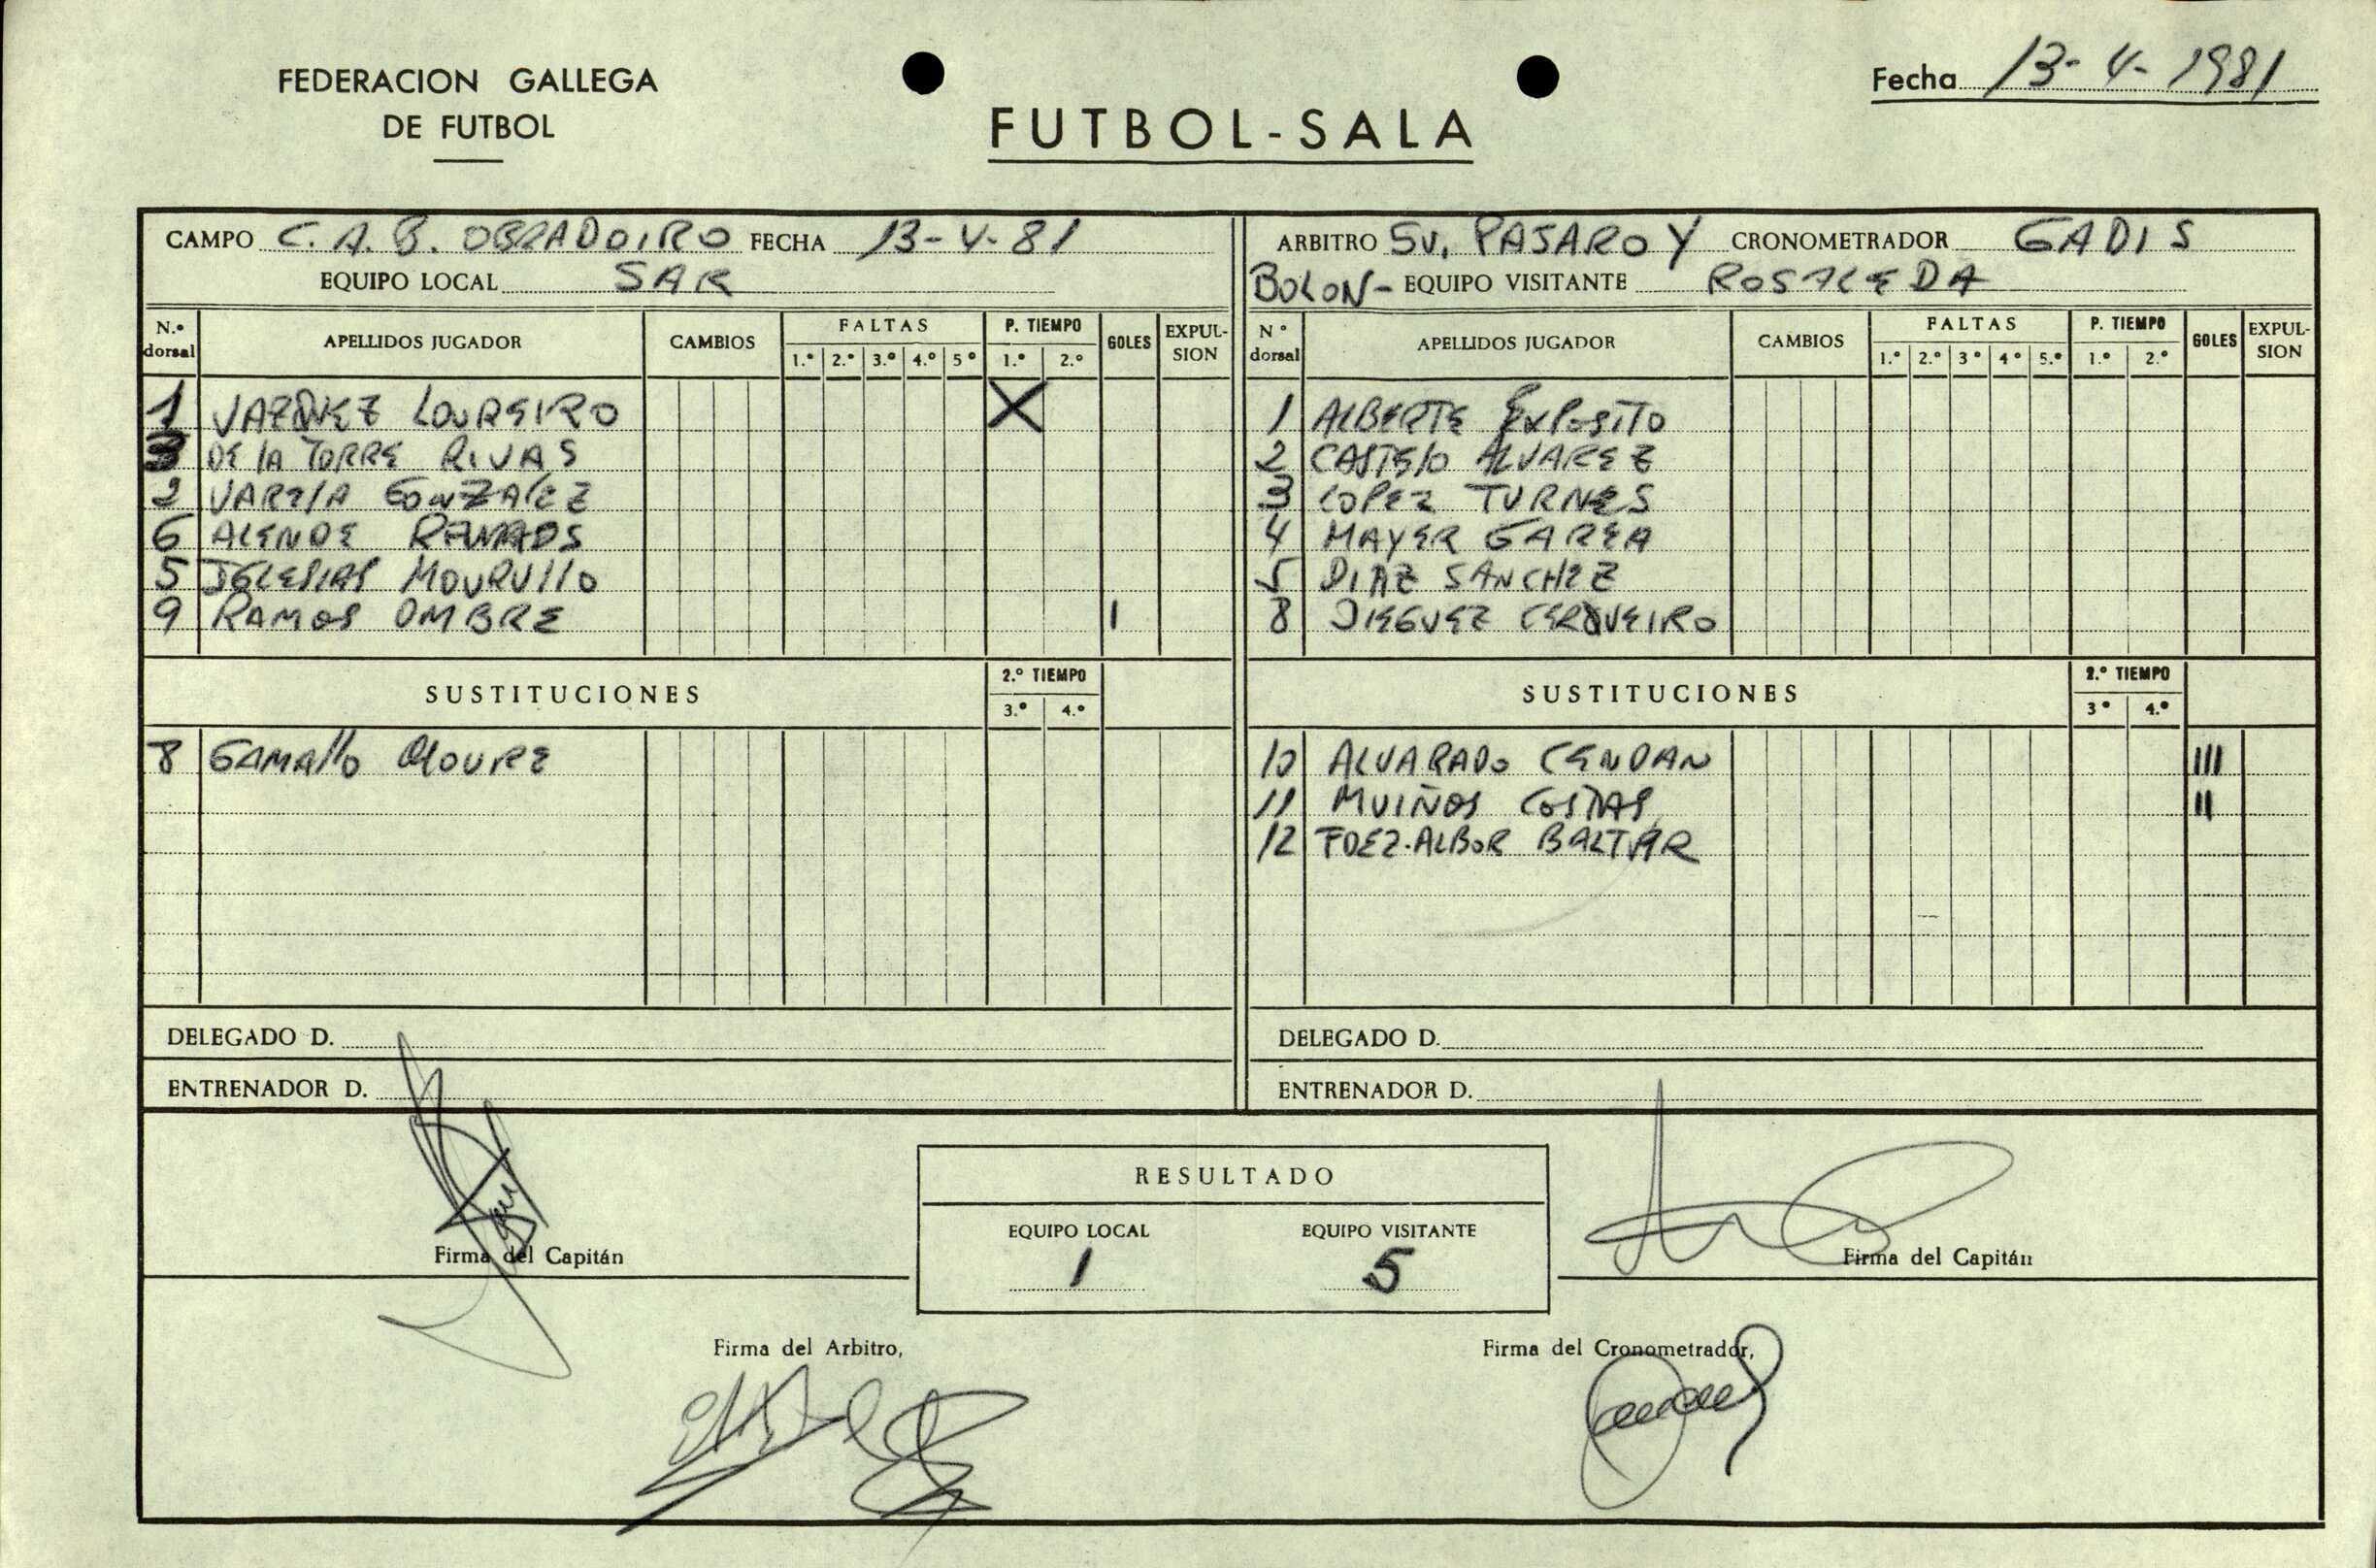 FEDERACION GALLEGA
DE FUTBOL
FUTBOL-SALA
Fecha 13-4-1981
CAMPO C.A.B. OBRADOIRO FECHA 13-4-81
EQUIPO LOCAL SAR
ARBITRO SV. PASARO Y CRONOMETRADOR GADIS
BOLON- EQUIPO VISITANTE ROSALEDA
N.º dorsal APELLIDOS JUGADOR CAMBIOS FALTAS 1.º 2.º 3.º 4.º 5º P. TIEMPO 1.º 2.º GOLES EXPUL-SION
1 VAZQUEZ LOUREIRO X
3 DE LA TORRE RIVAS
2 VARELA GONZALEZ
6 ALENDE
5 IGLESIAS MOURULLO
9 RAMOS OMBRE I
SUSTITUCIONES 2.º TIEMPO 3.º 4.º
8 GAMALLO MOURE
DELEGADO D.
ENTRENADOR D.
Nº dorsal APELLIDOS JUGADOR CAMBIOS FALTAS 1.º 2.º 3º 4º 5.º P. TIEMPO 1.º 2.º GOLES EXPUL-SION
1 ALBERTE EXPOSITO
2 CASTELO ALVAREZ
3 LOPEZ TURNES
4 MAYER GAREA
5 DIAZ SANCHEZ
8 DIEGUEZ CERQUEIRO
SUSTITUCIONES 2.º TIEMPO 3º 4.º
10 ALVARADO CENDAN III
11 MUIÑOS COSTAS II
12 FDEZ-ALBOR BALTAR
DELEGADO D.
ENTRENADOR D.
RESULTADO
EQUIPO LOCAL EQUIPO VISITANTE
1 5
Firma del Capitán
Firma del Capitán
Firma del Arbitro,
Firma del Cronometrador,